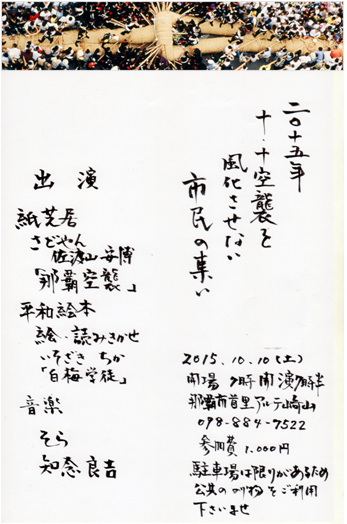 二〇十五年
十・十空襲を
風化させない
市民の集い
2015.10.10(土)
開場 時開演 時半
那覇市首里アルテ崎山
098-884-7522
参加費 1.000円
駐車場は限りがあるため
公共の のり物をご利用
下さいませ
出演
紙芝居
さどやん
佐渡山安博
「那覇空襲」
平和絵本
絵・読みきかせ
いそざき ちか
「白梅学徒」
音楽
そら
知念良吉